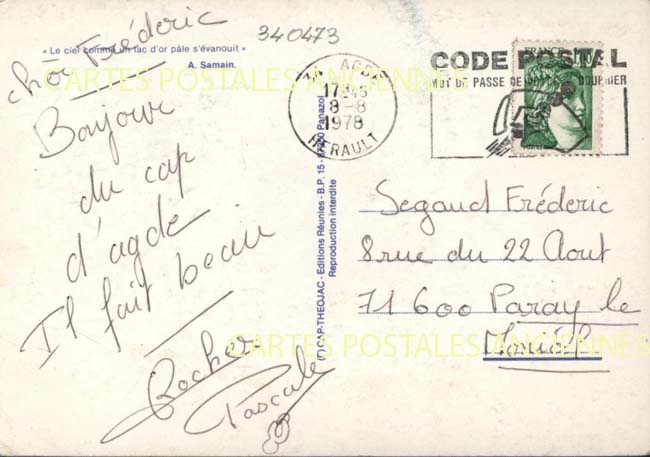 340473
« Le ciel comme un lac d'or pâle s'évanouit »
A. Samain.
chör Fréderic
Bonjour
du cap
d'agde
Il fait beau
Becker
Pascale
AGDE
17H45
8-8
1978
HERAULT
CODE POSTAL
MOT DE PASSE DE VOTRE COURRIER
FRANCE
POSTES
CAP-THEOJAC - Editions Réunies - B.P. 15 - 87350 Panazol
Reproduction interdite
Segaud Fréderic
8 rue du 22 Aout
71600 Paray le
Monial
CARTES POSTALES ANCIENNES
CARTES POSTALES ANCIENNES